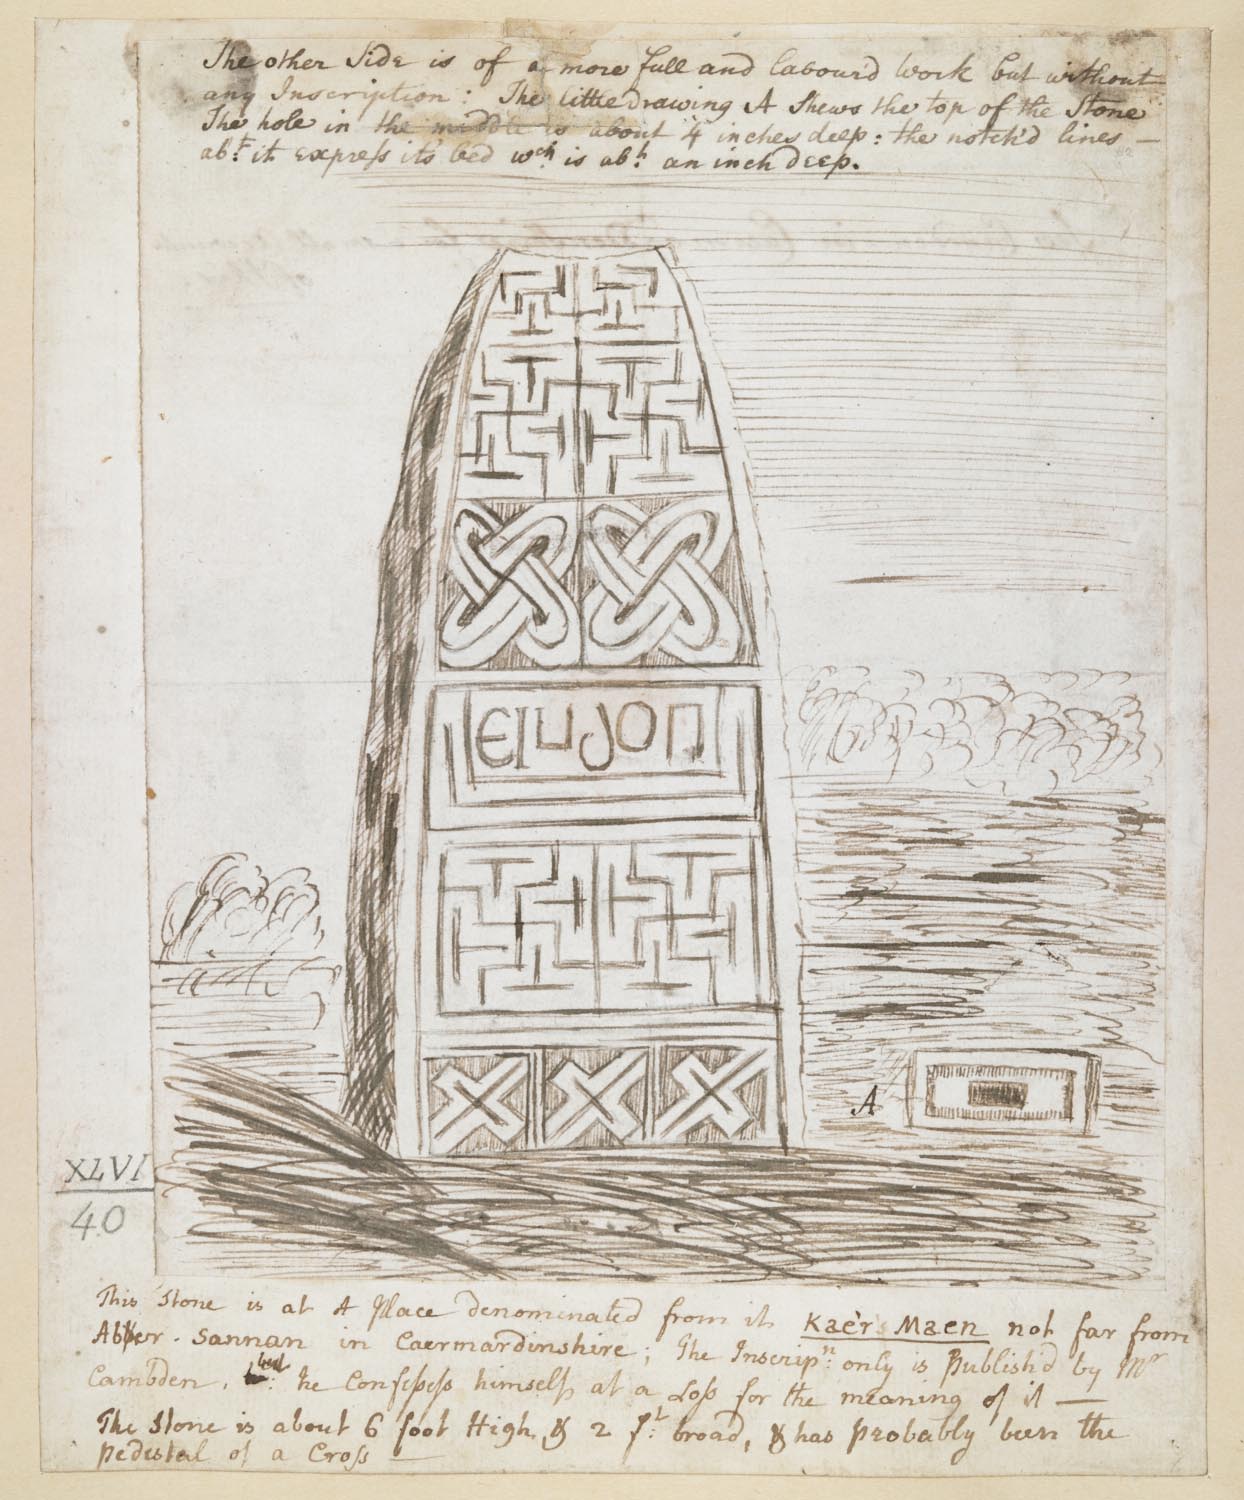 The other Side is of a more full and labour'd work but without
any Inscription: The little drawing A Shews the top of the Stone
The hole in the middle is about 4 inches deep: the notch'd lines —
abt. it express it's bed wch. is abt. an inch deep.
EIUJON
A
XLVI
40
This Stone is at A Place denominated from it Kaèr Maen not far from
Abber-Sannan in Caermardinshire; The Inscripn: only is Publish'd by Mr
Cambden, but he Confesses himself at a Loss for the meaning of it —
The Stone is about 6 foot High & 2 ft: broad, & has probably been the
Pedestal of a Cross —